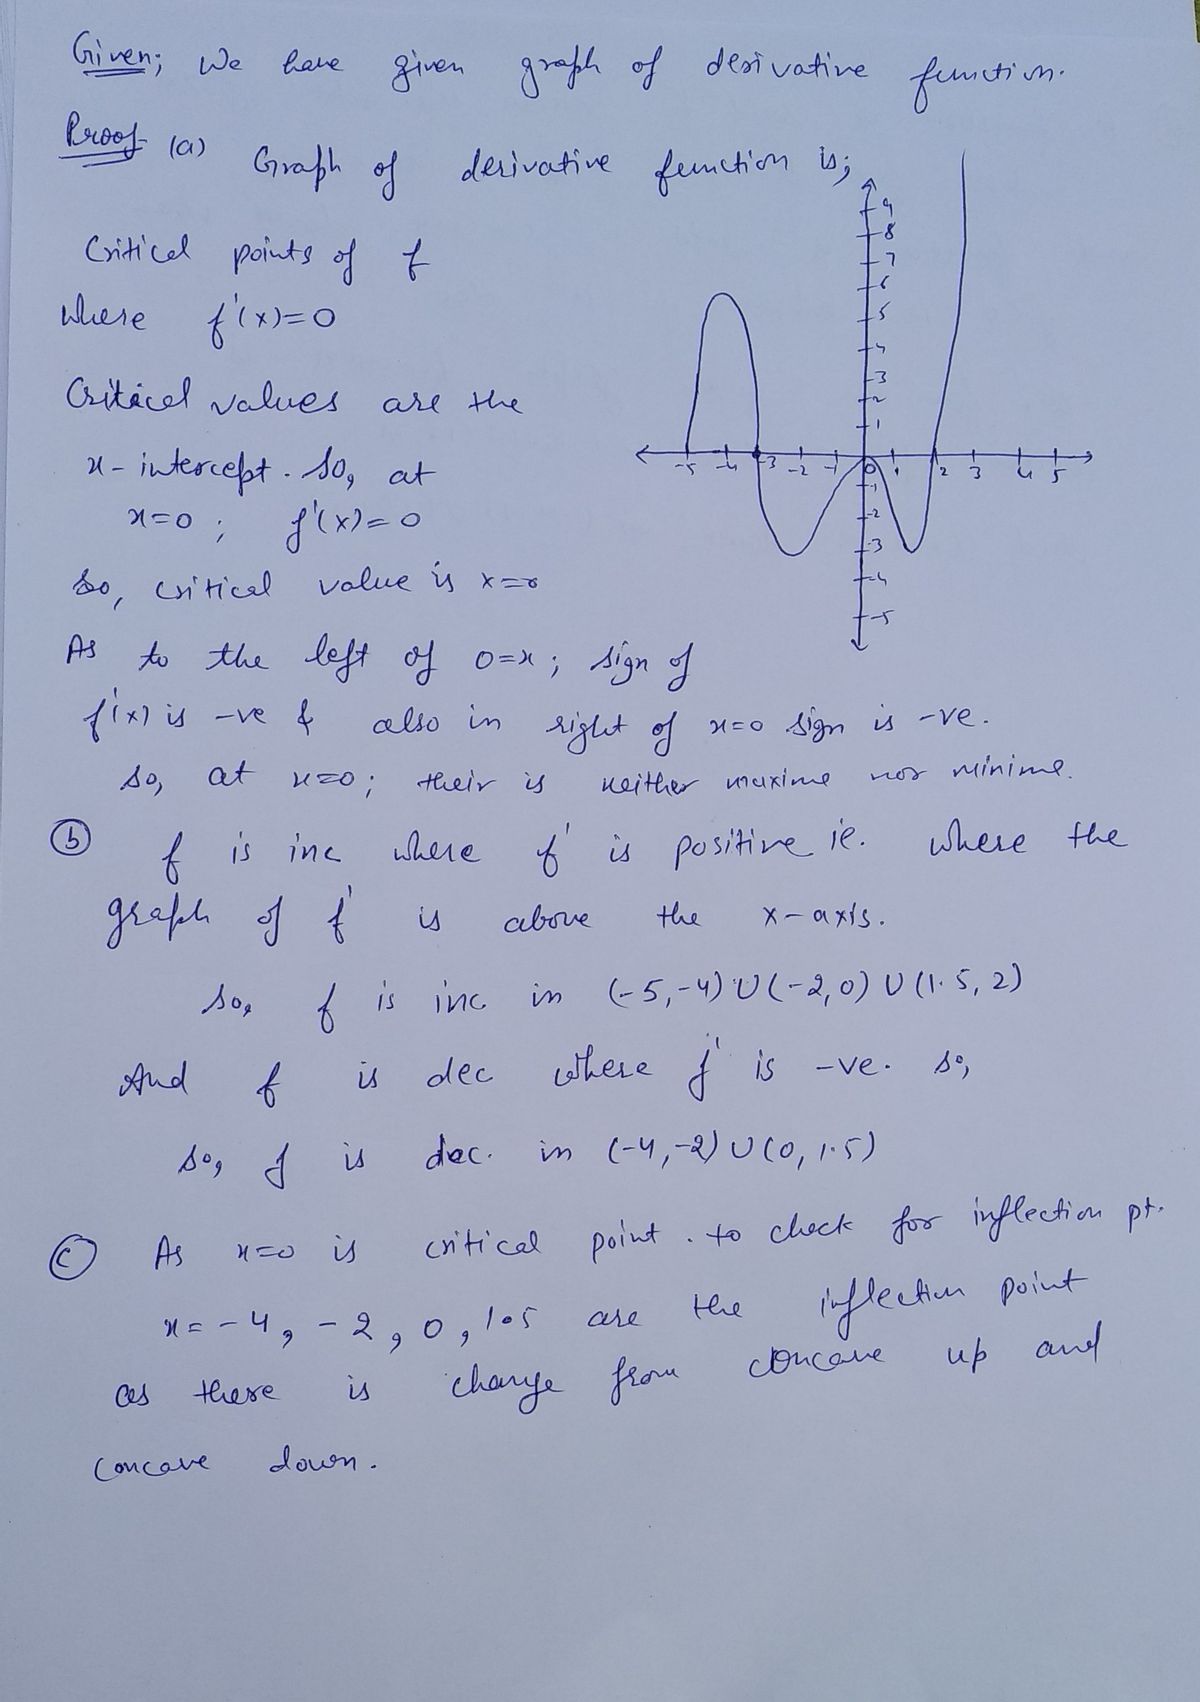 Given; We have given graph of derivative function.
Proof- (a) Graph of derivative function is;
Critical points of f
where f'(x)=0
Critical values are the
x-intercept. So, at
x=0 ; f'(x)=0
So, critical value is x=0
As to the left of 0=x; sign of
f'(x) is -ve & also in right of x=0 sign is -ve.
So, at x=0; their is neither maxime nor minime.
9
8
7
6
5
4
3
2
1
-5 -4 -3 -2 -1 0 1 2 3 4 5
-1
-2
-3
-4
-5
(b) f is inc where f' is positive ie. where the
graph of f' is above the x-axis.
So, f is inc in (-5,-4) U (-2,0) U (1.5, 2)
And f is dec where f' is -ve. So,
So, f is dec. in (-4,-2) U (0, 1.5)
(c) As x=0 is critical point. to check for inflection pt.
x = -4, -2, 0, 1.5 are the inflection point
as there is change from concave up and
concave down.